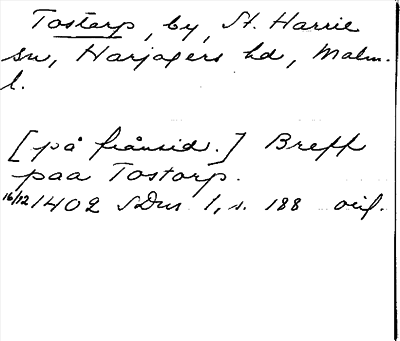 Tostarp, by, St. Harrie
sn, Harjagers hd, Malm.
l.
[på frånsid.] Breff
paa Tostorp.
16/12 1402 SDns 1, s. 188 orig.